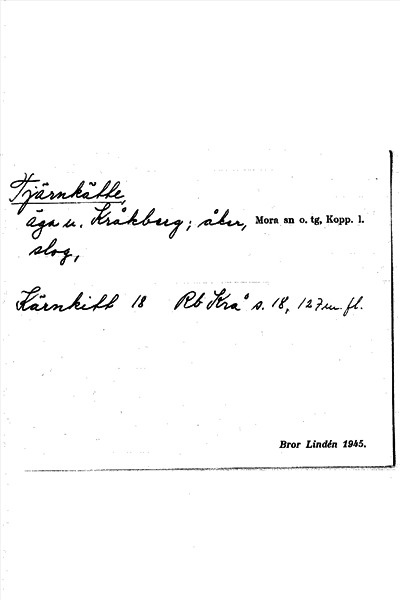 Tjärnkätte,
äga u. Kråkberg; åker, Mora sn o. tg, Kopp. l.
slog,
Kärnkitt 18 Rb Krå s. 18, 127 m. fl.
Bror Lindén 1945.